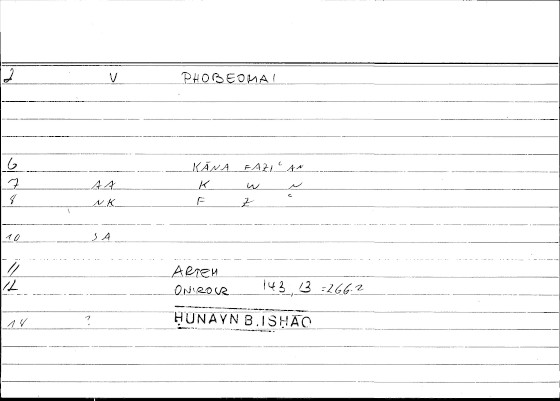 2 V PHOBEOMAI
6 KĀNA FAZIʿAN
7 AA K W N
8 NK F Z ʿ
10 SA
11 ARTEM
12 ONIROCR 143, 13 = 266.2
14 ? ḤUNAYN B. ISḤĀQ